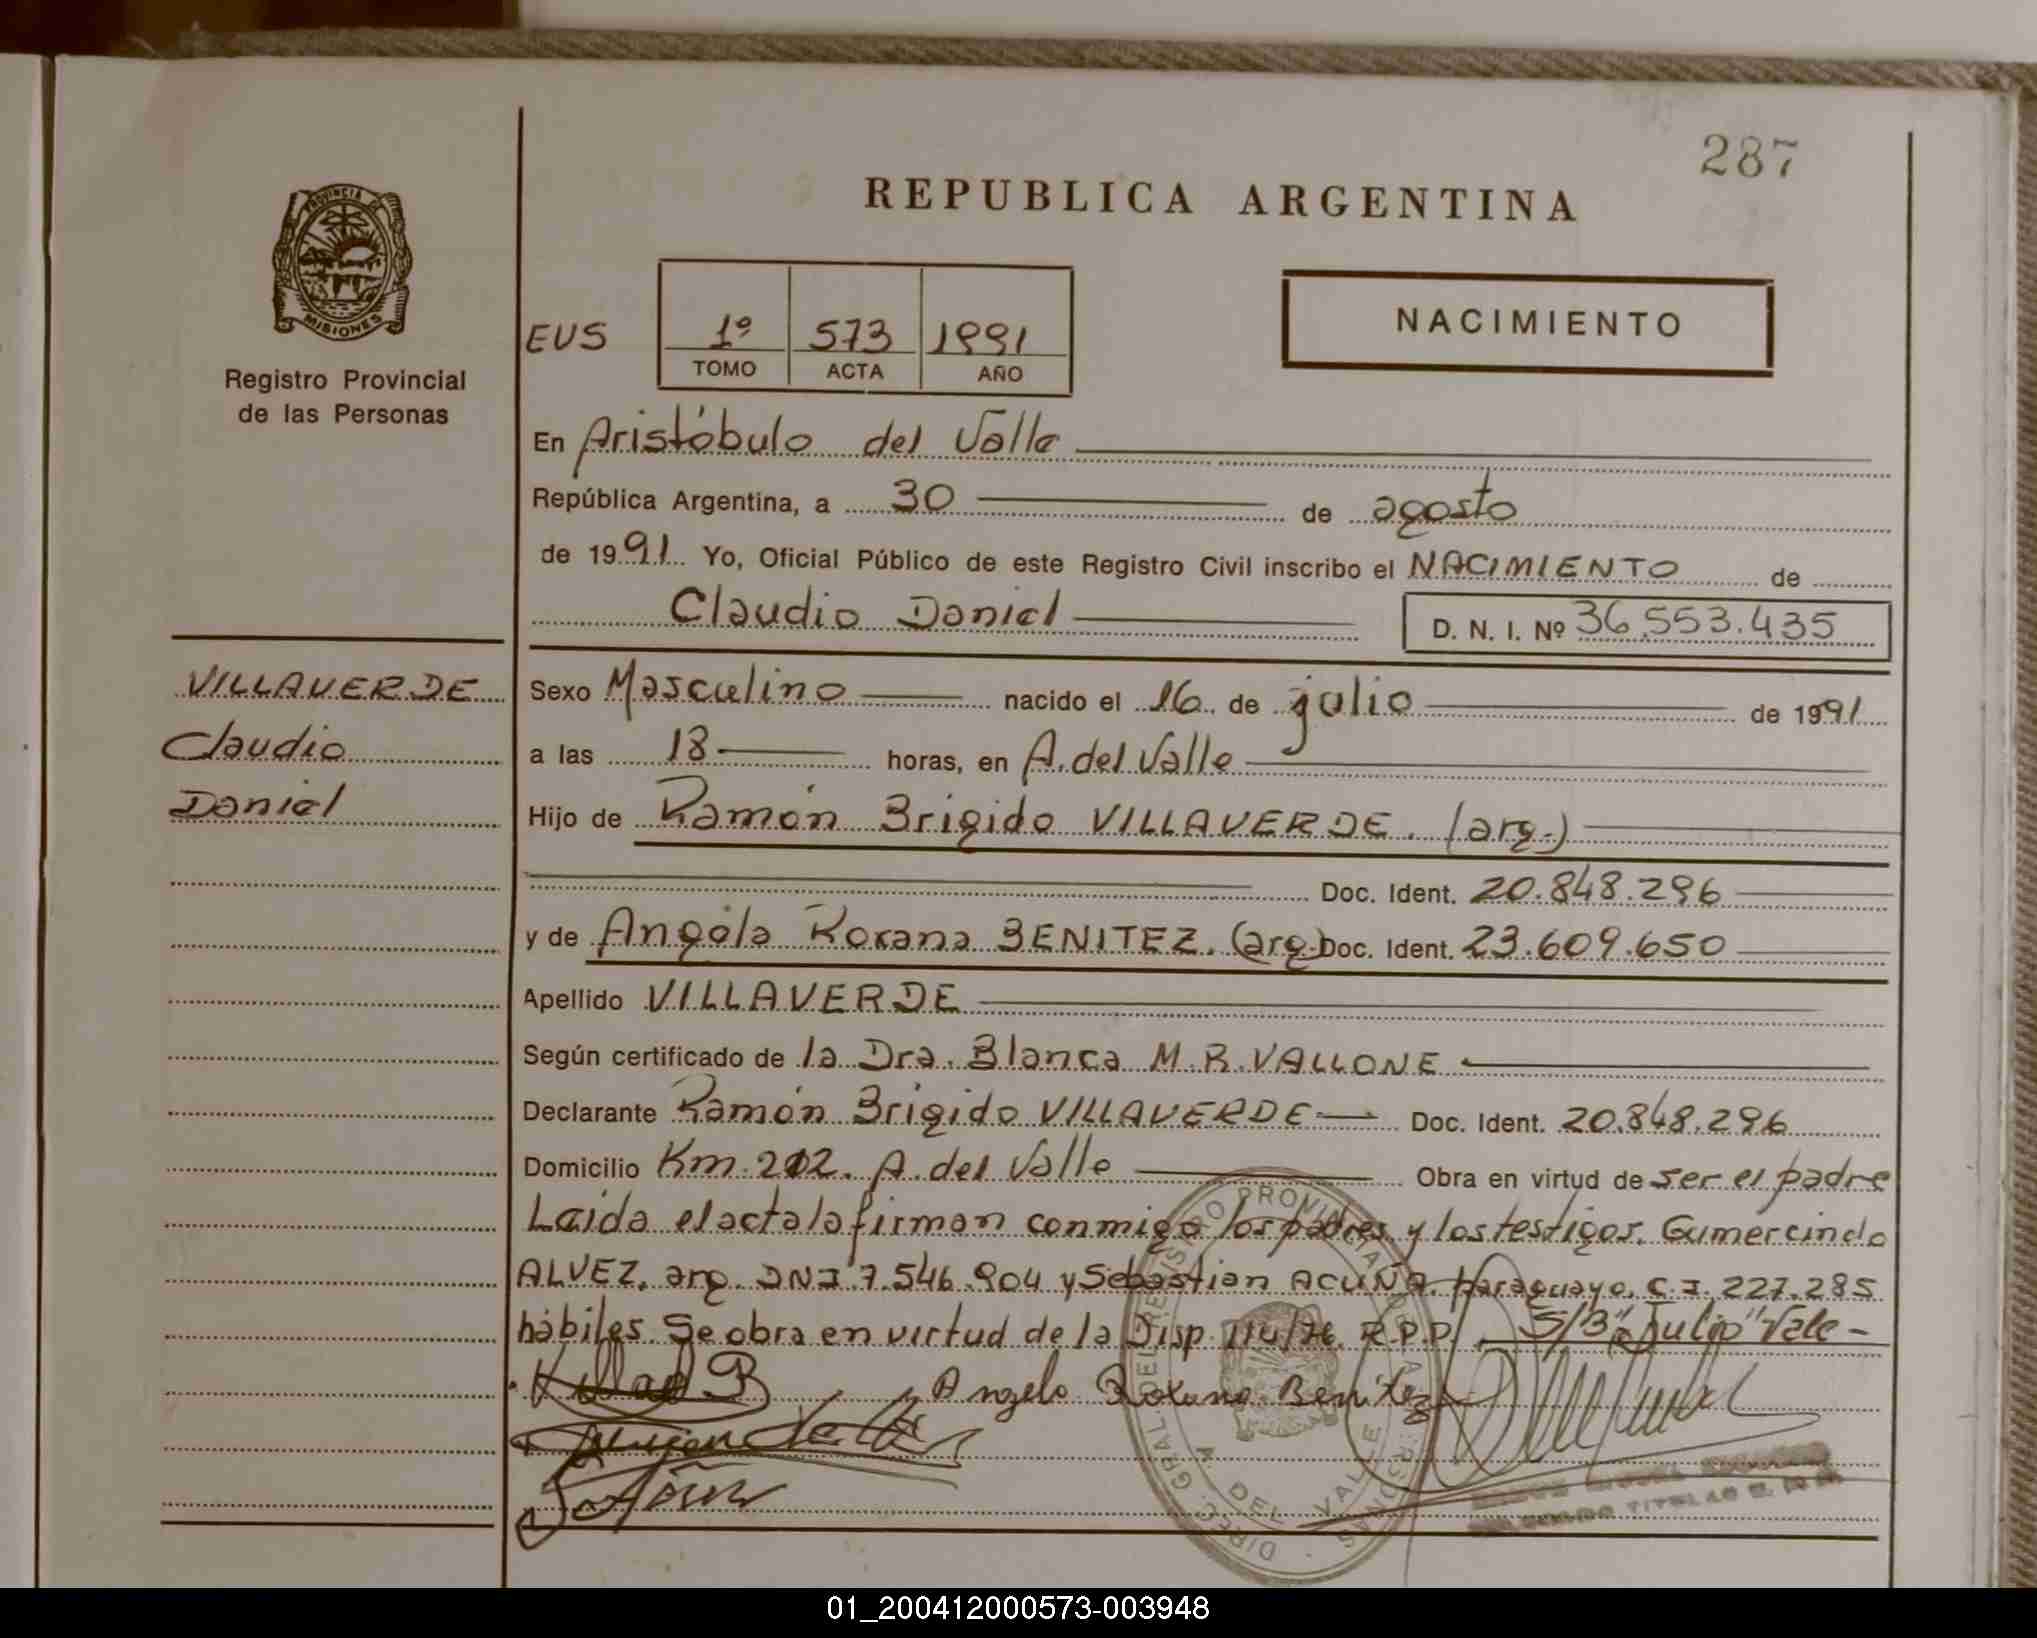 287
REPUBLICA ARGENTINA
PROVINCIA DE
MISIONES
Registro Provincial
de las Personas
EUS
1º 573 1991
TOMO ACTA AÑO
NACIMIENTO
En Aristóbulo del Valle
República Argentina, a 30 de agosto
de 1991 Yo, Oficial Público de este Registro Civil inscribo el NACIMIENTO de
Claudio Daniel D. N. I. Nº 36.553.435
VILLAVERDE
Claudio
Daniel
Sexo Masculino nacido el 16 de julio de 1991
a las 18 horas, en A. del Valle
Hijo de Ramón Brigido VILLAVERDE. (arg.)
Doc. Ident. 20.848.296
y de Angela Roxana BENITEZ. (arg.) Doc. Ident. 23.609.650
Apellido VILLAVERDE
Según certificado de la Dra. Blanca M.R. VALLONE
Declarante Ramón Brigido VILLAVERDE Doc. Ident. 20.848.296
Domicilio Km. 212. A. del Valle Obra en virtud de ser el padre
Leida el acta la firman conmigo los padres y los testigos. Gumercindo
ALVEZ. arg. DNI 7.546.904 y Sebastian ACUÑA. paraguayo. C.I. 227.285
hábiles. Se obra en virtud de la Disp. 114/76. R.P.P. S/B "Julio" Vale-
Angela Roxana Benitez
DIREC. GRAL. DEL REGISTRO PROVINCIAL DE LAS PERSONAS
A. DEL VALLE
TITULAR
01_200412000573-003948